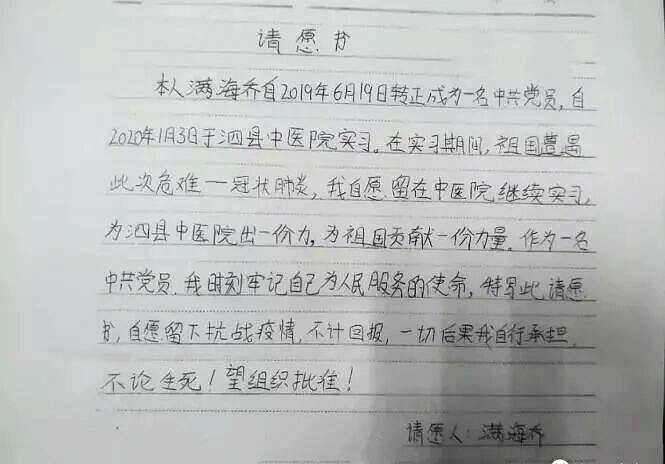 请愿书
本人满海乔自2019年6月19日转正成为一名中共党员，自
2020年1月3日于泗县中医院实习。在实习期间，祖国遭遇
此次危难——冠状肺炎，我自愿留在中医院继续实习，
为泗县中医院出一份力，为祖国贡献一份力量。作为一名
中共党员，我时刻牢记自己为人民服务的使命，特写此请愿
书，自愿留下抗战疫情，不计回报，一切后果我自行承担，
不论生死！望组织批准！
请愿人：满海乔